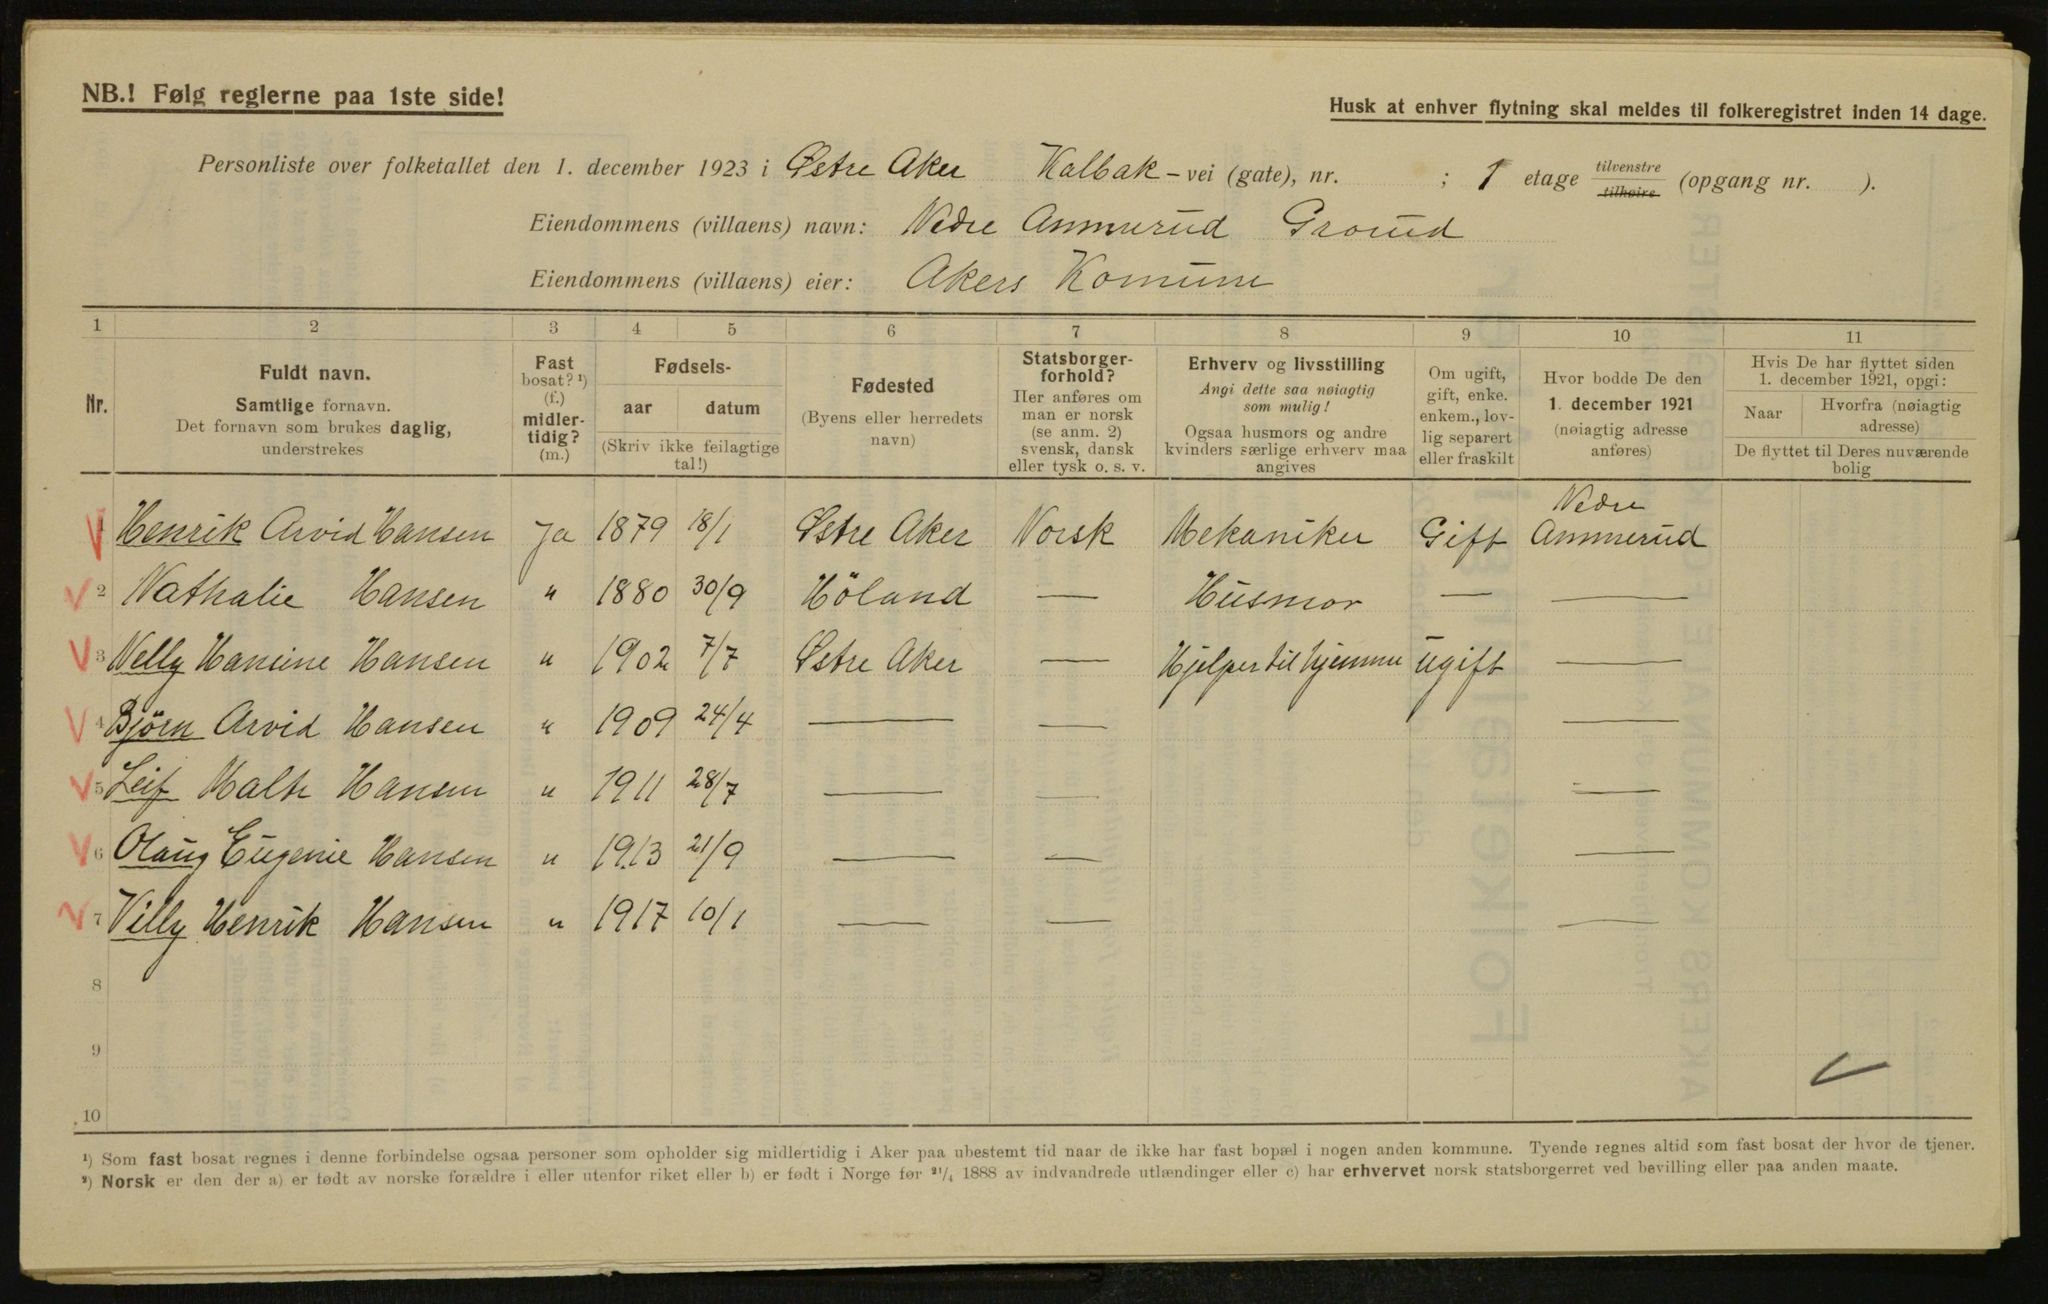 NB.! Følg reglerne paa 1ste side!
Husk at enhver flytning skal meldes til folkeregistret inden 14 dage.
Personliste over folketallet den 1. december 1923 i Østre Aker Kalbak - vei (gate), nr. ; 1 etage tilvenstre tilhøire (opgang nr. ).
Eiendommens (villaens) navn: Nedre Ammerud Grorud
Eiendommens (villaens) eier: Akers Komune
1 2 3 4 5 6 7 8 9 10 11
Nr.
Fuldt navn.
Samtlige fornavn.
Det fornavn som brukes daglig,
understrekes
Fast
bosat? ¹)
(f.)
midler-
tidig?
(m.)
Fødsels-
aar datum
(Skriv ikke feilagtige
tal!)
Fødested
(Byens eller herredets
navn)
Statsborger-
forhold?
Her anføres om
man er norsk
(se anm. 2)
svensk, dansk
eller tysk o. s. v.
Erhverv og livsstilling
Angi dette saa nøiagtig
som mulig!
Ogsaa husmors og andre
kvinders særlige erhverv maa
angives
Om ugift,
gift, enke.
enkem., lov-
lig separert
eller fraskilt
Hvor bodde De den
1. december 1921
(nøiagtig adresse
anføres)
Hvis De har flyttet siden
1. december 1921, opgi:
Naar Hvorfra (nøiagtig
adresse)
De flyttet til Deres nuværende
bolig
1 Henrik Arvid Hansen Ja 1879 18/1 Østre Aker Norsk Mekaniker Gift Nedre Ammerud
2 Nathalie Hansen " 1880 30/9 Höland — Husmor — —
3 Nelly Hansine Hansen " 1902 7/7 Østre Aker — Hjelper til hjemme ugift —
4 Björn Arvid Hansen " 1909 24/4 — — —
5 Leif Hansen " 1911 28/7 — — —
6 Olaug Eugenie Hansen " 1913 21/9 — — —
7 Villy Henrik Hansen " 1917 10/1 — — —
8
9
10
¹) Som fast bosat regnes i denne forbindelse ogsaa personer som opholder sig midlertidig i Aker paa ubestemt tid naar de ikke har fast bopæl i nogen anden kommune. Tyende regnes altid som fast bosat der hvor de tjener.
²) Norsk er den der a) er født av norske forældre i eller utenfor riket eller b) er født i Norge før ²¹/₄ 1888 av indvandrede utlændinger eller c) har erhvervet norsk statsborgerret ved bevilling eller paa anden maate.